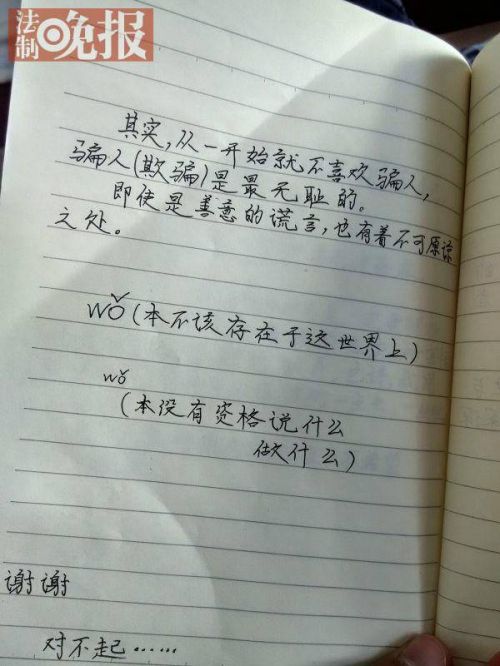 法制晚报
其实,从一开始就不喜欢骗人,
骗人(欺骗)是最无耻的。
即使是善意的谎言,也有着不可原谅
之处。
wǒ(本不该存在于这世界上)
wǒ
(本没有资格说什么
做什么)
谢谢
对不起……